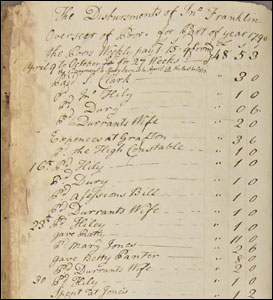 The Disbursments of Jno. Franklin
Overseer of Poor for Part of year 1790
the Poors Weekly pays 15 from
April 9 to October for 27 Weeks 48 5 3
Clark 5 0
Pd Jno. Hily 1 0
Pd Dury 0 6
Pd Durrants Wife 2 0
Expences at Grafton 3 6
Pd the High Constable 1 0
16th Pd Hily 1 0
Pd Dury 1 0
Pd Asessions Bill 1 0
Pd Durrants Wife 2 0
23rd Pd Hiley 1 0
gave Betty 1 0
Pd Mary Jones
gave Betty Panter
Pd Durrants Wife 2 0
30 Pd Hily 1 0
Spent at Jones